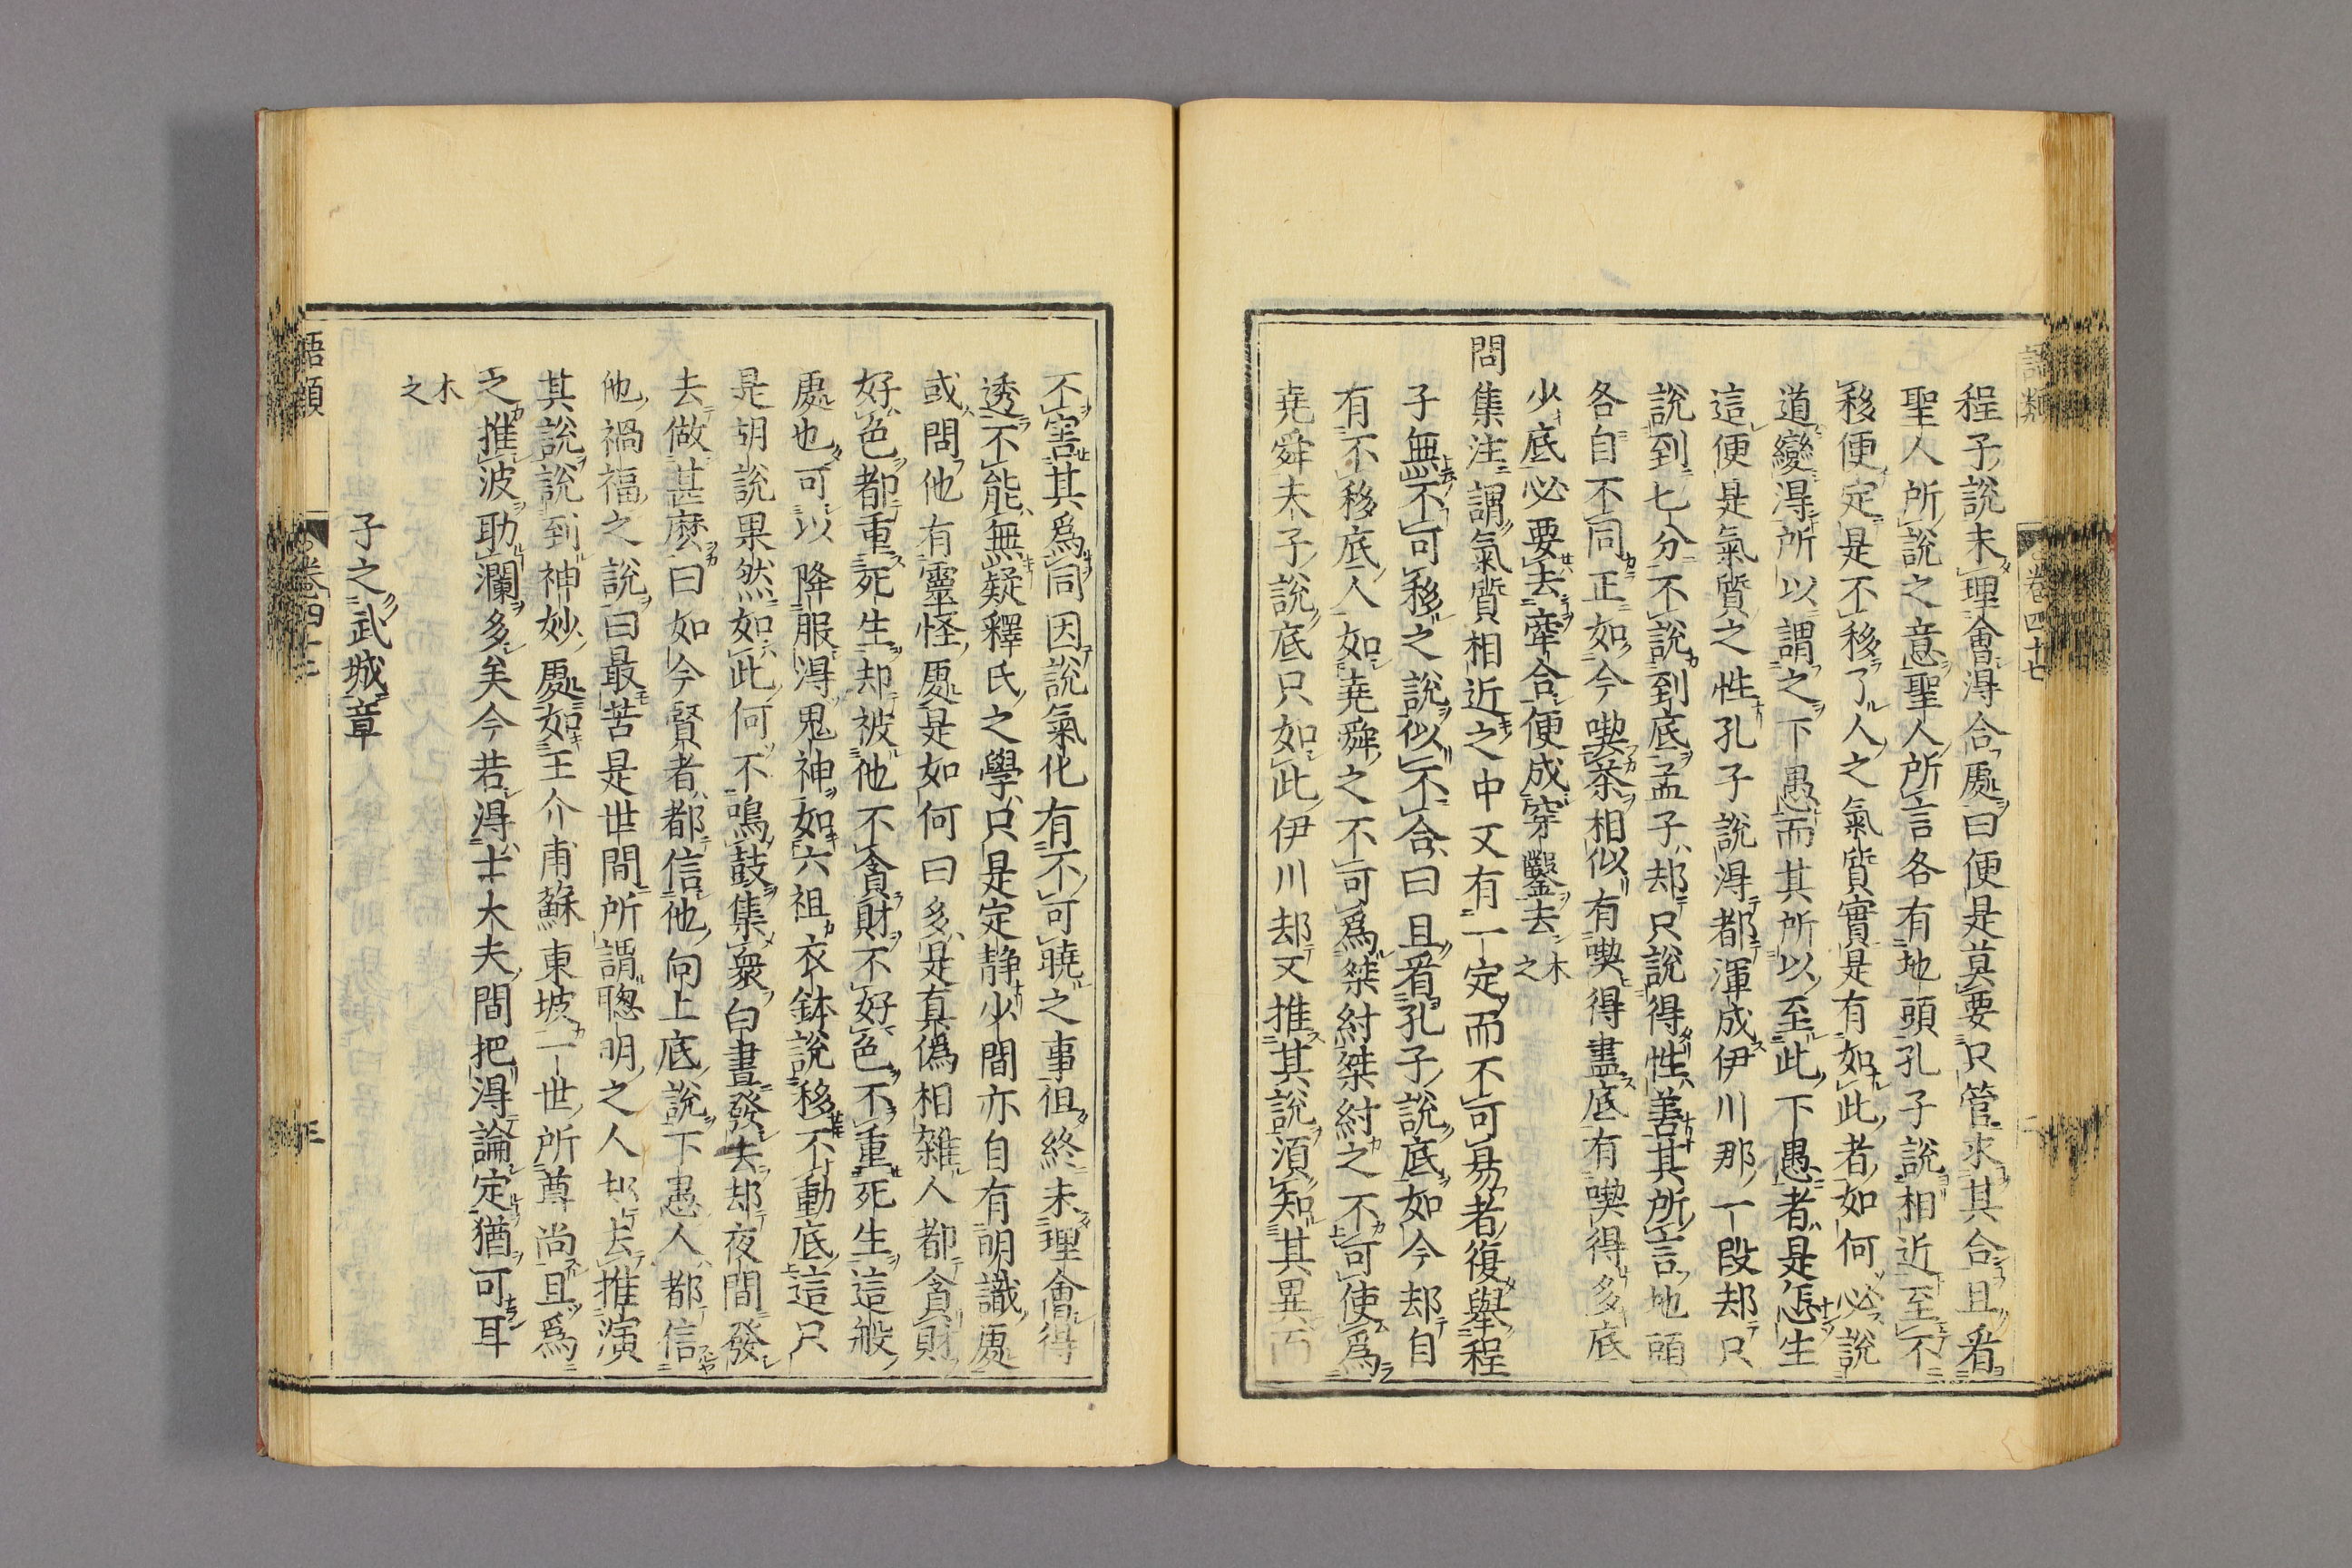 語類
卷四十七
程子說未理會得合處曰便是莫要只管求其合且看
聖人所說之意聖人所言各有地頭孔子說相近至不
移便定是不移了人之氣質實是有如此者如何必說
道變得所以謂之下愚而其所以至此下愚者是怎生
這便是氣質之性孔子說得都渾成伊川那一段却只
說到七分不說到底孟子却只說得性善其所言地頭
各自不同正如今喫茶相似有喫得盡底有喫得多底
少底必要去牽合便成穿鑿去木之
問集注謂氣質相近之中又有一定而不可易者復舉程
子無不可移之說似不合曰且看孔子說底如今却自
有不移底人如堯舜之不可爲桀紂桀紂之不可使爲
堯舜夫子說底只如此伊川却又推其說須知其異而
不害其爲同因說氣化有不可曉之事徂終未理會得
透不能無疑釋氏之學只是定静少間亦自有明識處
或問他有靈怪處是如何曰多是真僞相雜人都貪財
好色都重死生却被他不貪財不好色不重死生這般
處也可以降服得鬼神如六祖衣鉢說移不動底這只
是胡說果然如此何不鳴鼓集衆白晝發去却夜間發
去做甚麽曰如今賢者都信他向上底說下愚人都信
他禍福之說曰最苦是世間所謂聰明之人却去推演
其說說到神妙處如王介甫蘇東坡一世所尊尚且爲
之推波助瀾多矣今若得士大夫間把得論定猶可耳
木之
子之武城章
語類
卷四十七
三